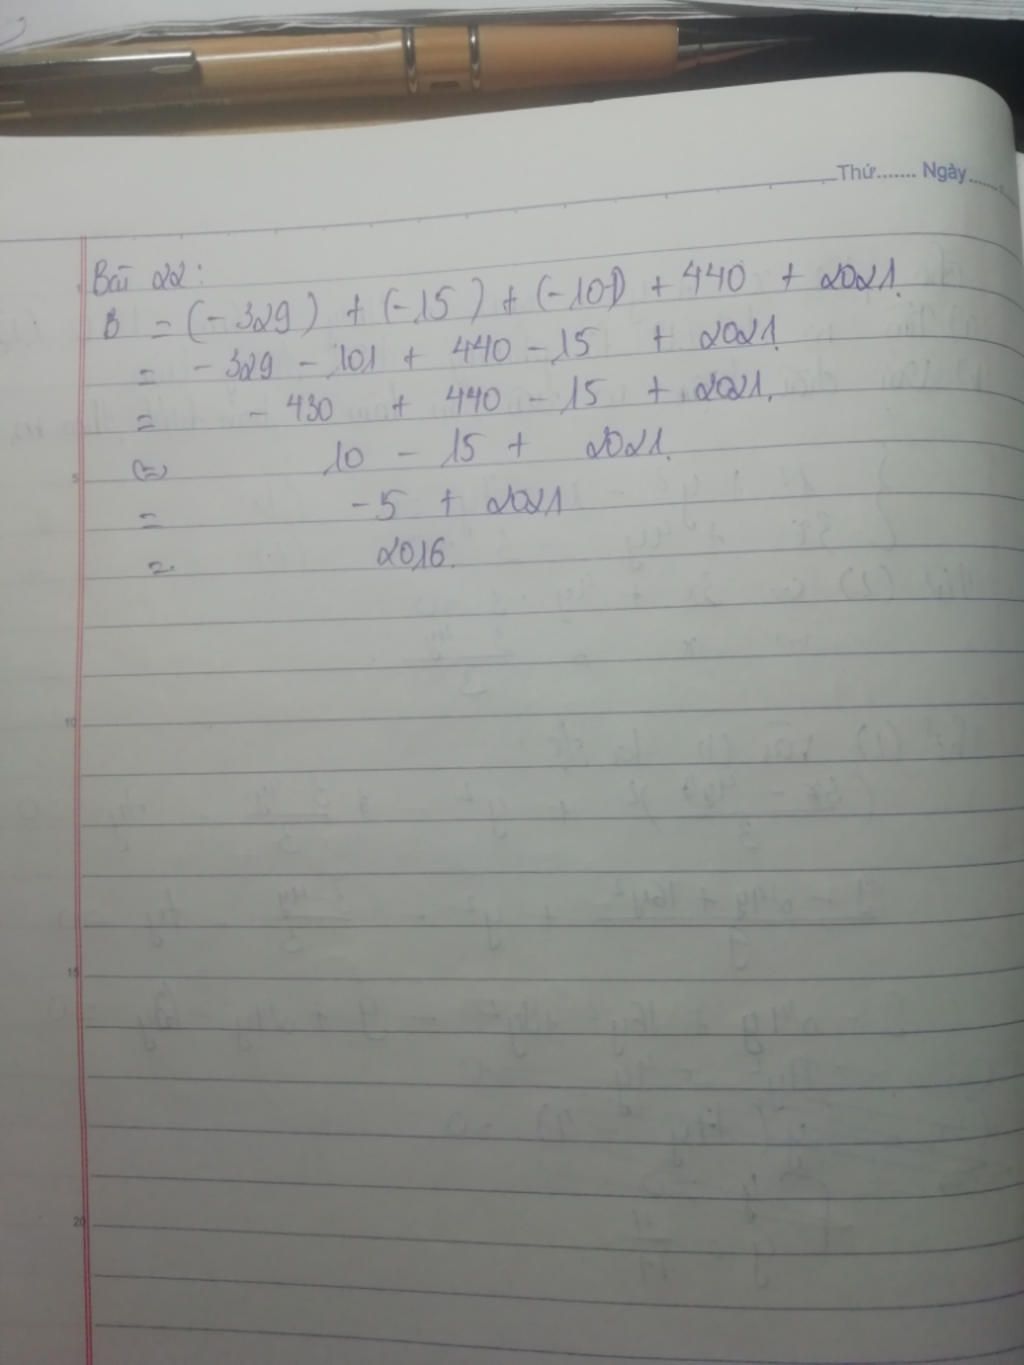 Thứ....... Ngày.......
Bài 22:
B = (-329) + (-15) + (-101) + 440 + 2021.
= -329 - 101 + 440 - 15 + 2021.
= -430 + 440 - 15 + 2021.
(=) 10 - 15 + 2021.
= -5 + 2021
= 2016.
5
10
15
20